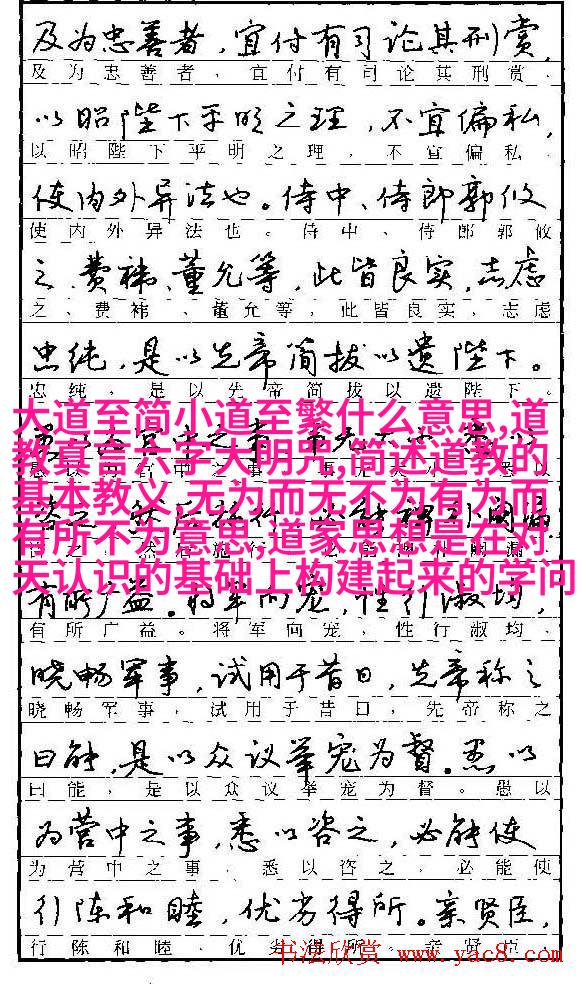 及为忠善者，宜付有司论其刑赏，
及为忠善者、宜付有司论其刑赏、
以昭陛下平明之理，不宜偏私，
以昭陛下平明之理、不宜偏私、
使内外异法也。侍中、侍郎郭攸
使内外异法也。侍中、侍郎郭攸
之、费祎、董允等，此皆良实，志虑
之、费祎、董允等、此皆良实、志虑
忠纯，是以先帝简拔以遗陛下。
忠纯、是以先帝简拔以遗陛下。
大道至简小道至繁什么意思,道
教真言六字大明咒,简述道教的
基本教义,无为而无不为有为而
有所不为意思,道家思想是在对
天认识的基础上构建起来的学问
有所广益。将军向宠，性行淑均，
有所广益。将军向宠、性行淑均、
晓畅军事，试用于昔日，先帝称之
晓畅军事、试用于昔日、先帝称之
曰能，是以众议举宠为督。愚以
曰能、是以众议举宠为督。愚以
为营中之事，悉以咨之，必能使
为营中之事、悉以咨之、必能使
行陈和睦，优劣得所。亲贤臣，
行陈和睦、优劣得所。亲贤臣、
书法欣赏 www.yac8.com